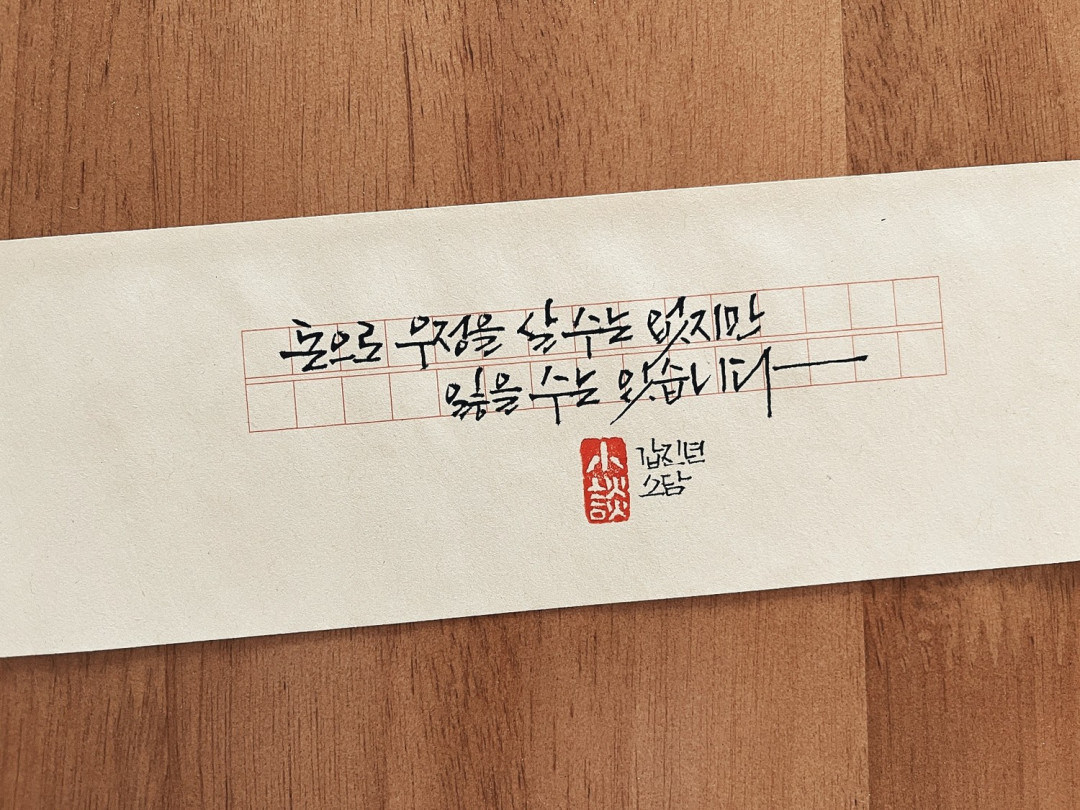 돈으로 우정을 살 수는 없지만
잃을 수는 있습니다
小談
갑진년
소담